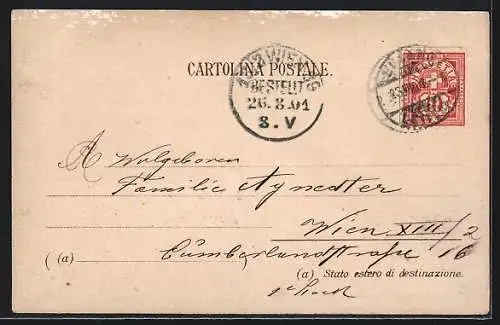 CARTOLINA POSTALE.
BESTELLT
26.8.01
8.V
HELVETIA
10
Wolgeboren
Familie
Wien XIII/2
Cumberlandstraße 16
(a)
(a) Stato estero di destinazione.